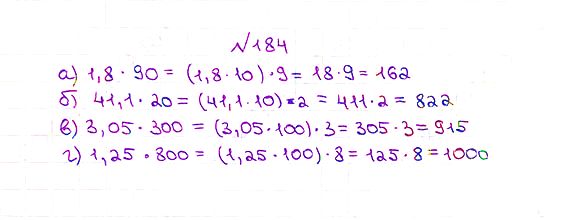 №184
а) 1,8 · 90 = (1,8 · 10) · 9 = 18 · 9 = 162
б) 41,1 · 20 = (41,1 · 10) · 2 = 411 · 2 = 822
в) 3,05 · 300 = (3,05 · 100) · 3 = 305 · 3 = 915
г) 1,25 · 800 = (1,25 · 100) · 8 = 125 · 8 = 1000